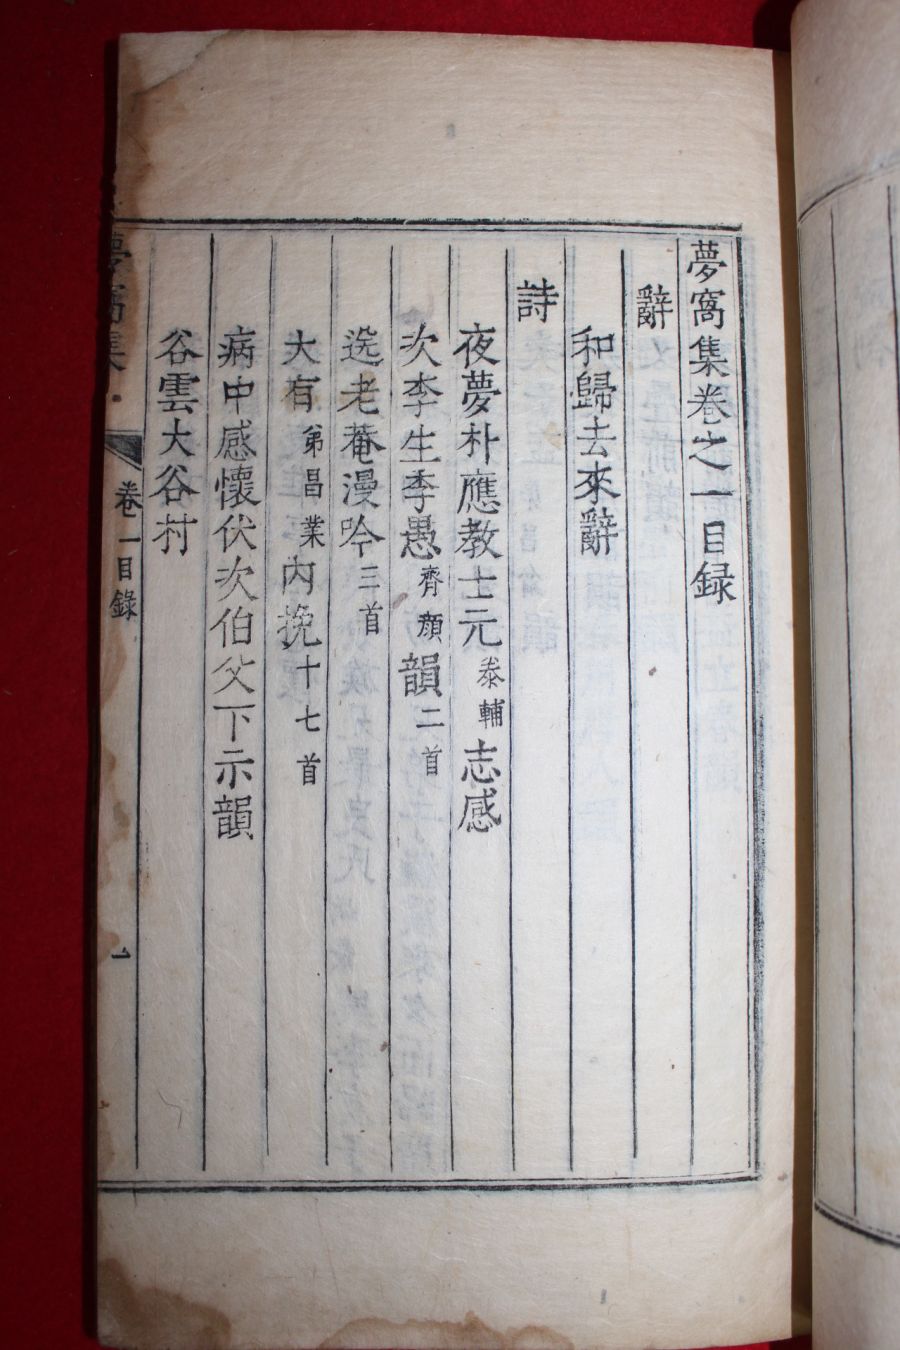 夢窩集卷之一目録
辭
和歸去來辭
詩
夜夢朴應教士元泰輔志感
次李生季愚齊顔韻二首
選老菴漫吟三首
大有第昌業內挽十七首
病中感懷伏次伯父下示韻
谷雲大谷村
夢窩集
卷一目錄
一